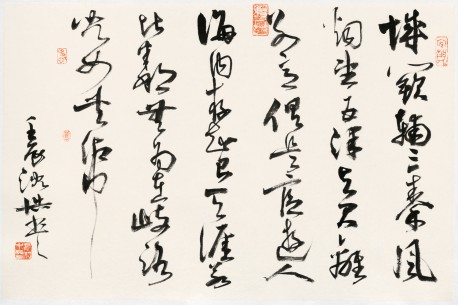 城闕輔三秦風
烟望五津与君離
别意俱是宦遊人
海内存知己天涯若
比鄰無為在歧路
児女共沾巾
壬辰